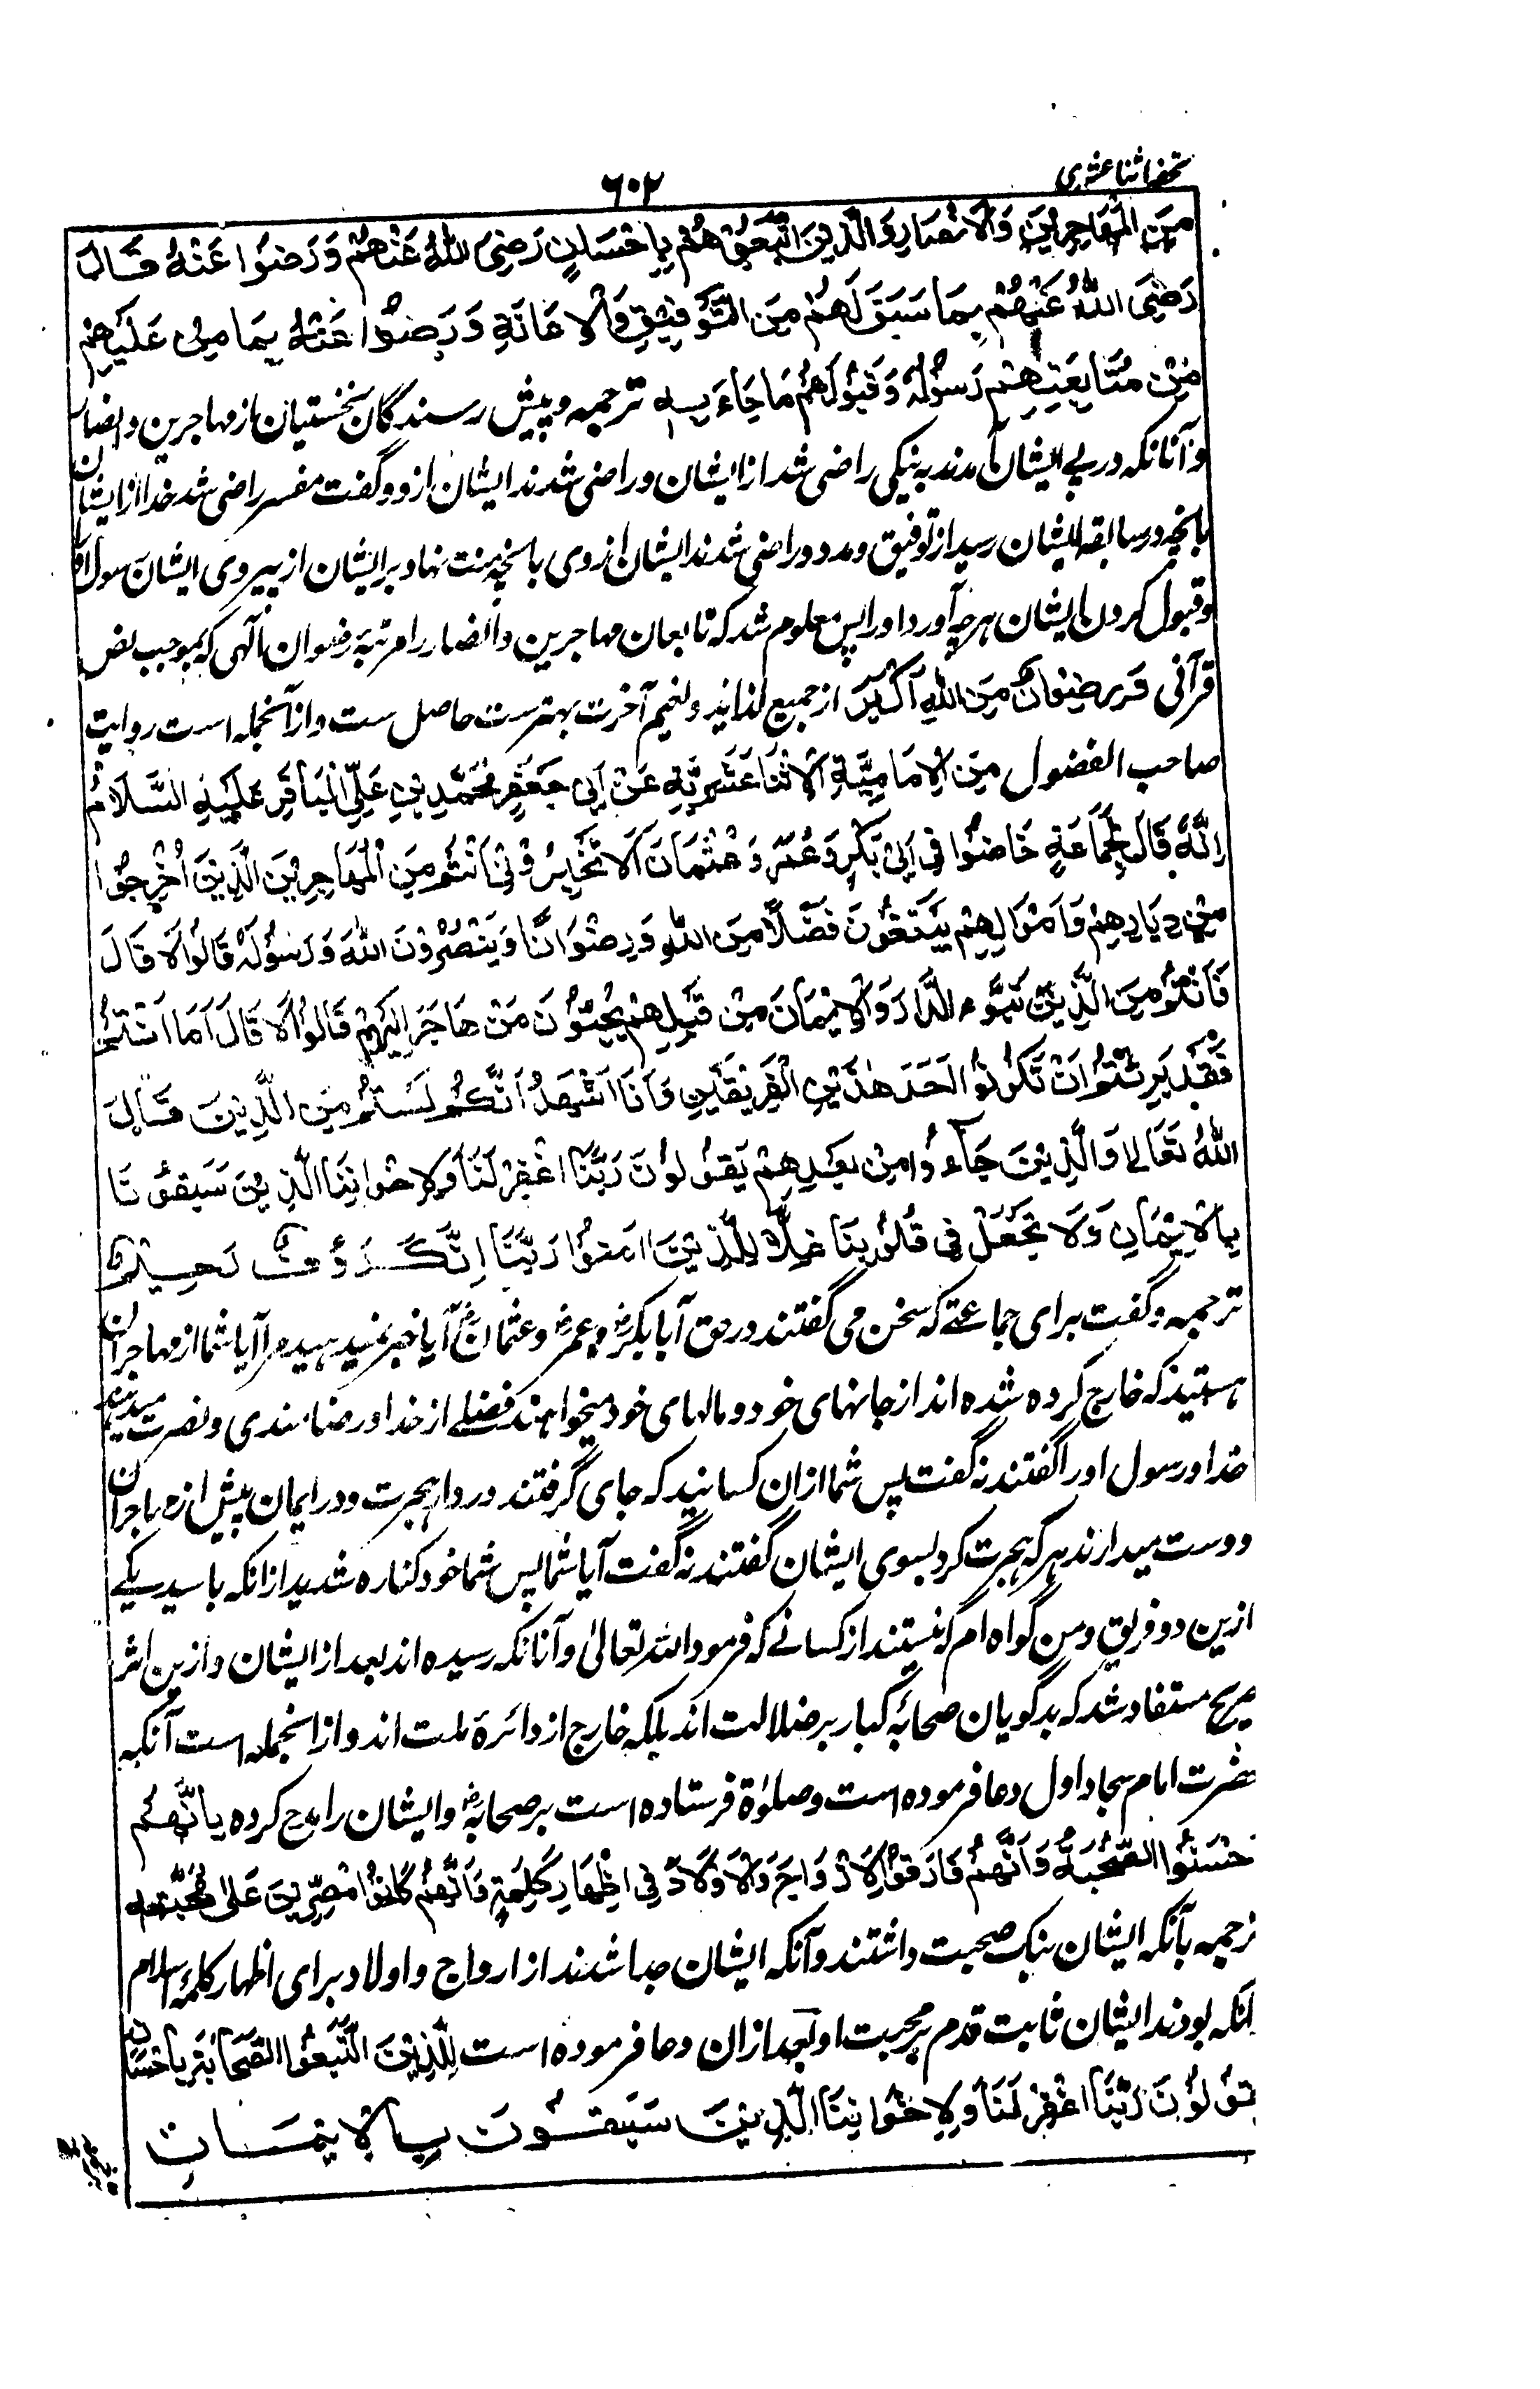 تحفه اثنا عشری
٦٠٢
مِنَ الْمُهَاجِرِيْنَ وَالْاَنْصَارِ وَالَّذِيْنَ اتَّبَعُوْهُمْ بِاِحْسَانٍ رَضِيَ اللهُ عَنْهُمْ وَرَضُوْا عَنْهُ قَالَ
رَضِيَ اللهُ عَنْهُمْ بِمَا سَبَقَ لَهُمْ مِنَ التَّوْفِيْقِ وَالْاِعَانَةِ وَرَضُوْا عَنْهُ بِمَا مَنَّ عَلَيْهِمْ
مِنْ مُتَابِعَتِهِمْ رَسُوْلَهُ وَقَبُوْلِهِمْ مَا جَاءَ بِهِ ترجمه و پیش رسندگان نخستیان از مهاجرین و انصار
و آنانکه در پی ایشان آمدند به نیکی راضی شد از ایشان و راضی شدند ایشان ازو و گفت مفسر راضی شد خدا از ایشان
بانچه در سابقه ایشان رسید از توفیق و مدد و راضی شدند ایشان از وی بانچه منت نهاد بر ایشان از پیروی ایشان رسول او
و قبول کردن ایشان هرچه آورد او را پس معلوم شد که تابعان مهاجرین و انصار را مرتبهٔ رضوان الهی که بموجب نص
قرآنی وَرِضْوَانٌ مِنَ اللهِ اَكْبَرُ از جمیع لذائذ و نعیم آخرت بهترست حاصل ست و ازانجمله است روایت
صاحب الفضول مِنَ الْاِمَامِيَّةِ الْاِثْنَا عَشَرِيَّةِ عَنْ اَبِیْ جَعْفَرٍ مُحَمَّدِ بْنِ عَلِيٍّ الْبَاقِرِ عَلَيْهِ السَّلَامُ
اِنَّهُ قَالَ لِجَمَاعَةٍ خَاضُوْا فِیْ اَبِیْ بَكْرٍ وَعُمَرَ وَعُثْمَانَ اَلَا تُخْبِرُوْنِیْ اَنْتُمْ مِنَ الْمُهَاجِرِيْنَ الَّذِيْنَ اُخْرِجُوْا
مِنْ دِيَارِهِمْ وَاَمْوَالِهِمْ يَبْتَغُوْنَ فَضْلًا مِنَ اللهِ وَرِضْوَانًا وَيَنْصُرُوْنَ اللهَ وَرَسُوْلَهُ قَالُوْا لَا قَالَ
فَاَنْتُمْ مِنَ الَّذِيْنَ تَبَوَّءُ الدَّارَ وَالْاِيْمَانَ مِنْ قَبْلِهِمْ يُحِبُّوْنَ مَنْ هَاجَرَ اِلَيْهِمْ قَالُوْا لَا قَالَ اَمَا اَنْتُمْ
فَقَدْ بَرِئْتُمْ اَنْ تَكُوْنُوْا اَحَدَ هٰذَيْنِ الْفَرِيْقَيْنِ وَاَنَا اَشْهَدُ اَنَّكُمْ لَسْتُمْ مِنَ الَّذِيْنَ قَالَ
اللهُ تَعَالٰى وَالَّذِيْنَ جَآءُوْا مِنْ بَعْدِهِمْ يَقُوْلُوْنَ رَبَّنَا اغْفِرْ لَنَا وَلِاِخْوَانِنَا الَّذِيْنَ سَبَقُوْنَا
بِالْاِيْمَانِ وَلَا تَجْعَلْ فِیْ قُلُوْبِنَا غِلًّا لِلَّذِيْنَ اٰمَنُوْا رَبَّنَا اِنَّكَ رَؤُفٌ رَحِيْمٌ
ترجمه و گفت برای جماعتے که سخن می گفتند در حق ابا بکرؓ و عمرؓ و عثمانؓ آیا خبر نمیدهید مرا آیا شما از مهاجران
هستید که خارج کرده شده اند از خانهای خود و مالهای خود میخواهند فضلے از خدا و رضامندی و نصرت میدهند
خدا و رسول او را گفتند نه گفت پس شما ازان کسانید که جای گرفتند در دار هجرت و در ایمان پیش از مهاجران
دوست میدارند هر که هجرت کرد بسوی ایشان گفتند نه گفت آیا شما پس شما خود کناره شدید ازانکه باشید یکے
ازین دو فریق و من گواه ام که نیستند از کسانے که فرمود الله تعالیٰ و آنانکه رسیده اند بعد از ایشان و ازین اثر
صریح مستفاد شد که بدگویان صحابهٔ کبار بر ضلالت اند بلکه خارج از دائرهٔ ملت اند و ازانجمله است آنکه
حضرت امام سجاد اول دعا فرموده است و صلوٰة فرستاده است بر صحابهؓ و ایشان را مدح کرده بِاَنَّهُمْ
حَسَنُوا الصُّحْبَةَ وَاَنَّهُمْ فَارَقُوا الْاَزْوَاجَ وَالْاَوْلَادَ فِیْ اِظْهَارِ كَلِمَتِهٖ وَاَنَّهُمْ كَانُوْا مُصِرِّيْنَ عَلٰى مُحَبَّتِهٖ
ترجمه بآنکه ایشان نیک صحبت داشتند و آنکه ایشان جدا شدند از ازواج و اولاد برای اظهار کلمهٔ اسلام
آنکه بودند ایشان ثابت قدم بر محبت او و بعد ازان دعا فرموده است لِلَّذِيْنَ اتَّبَعُوا الصَّحَابَةَ بِاِحْسَانٍ
يَقُوْلُوْنَ رَبَّنَا اغْفِرْ لَنَا وَلِاِخْوَانِنَا الَّذِيْنَ سَبَقُوْنَ بِالْاِيْمَانِ